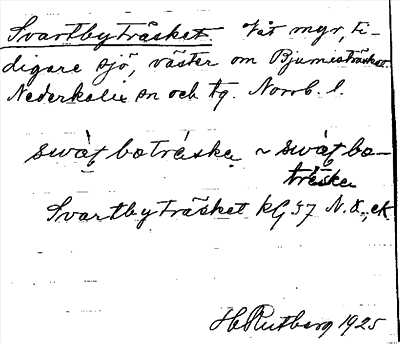 Svartbyträsket. Våt myr, ti-
digare sjö, väster om Bjumisträsket.
Nederkalix sn och tg. Norrb. l.
swàt̩ botrȧske ~ swàt̩ bo-
trȧske
Svartbyträsket kG 57 N.Ö., ek
H Rutberg 1925